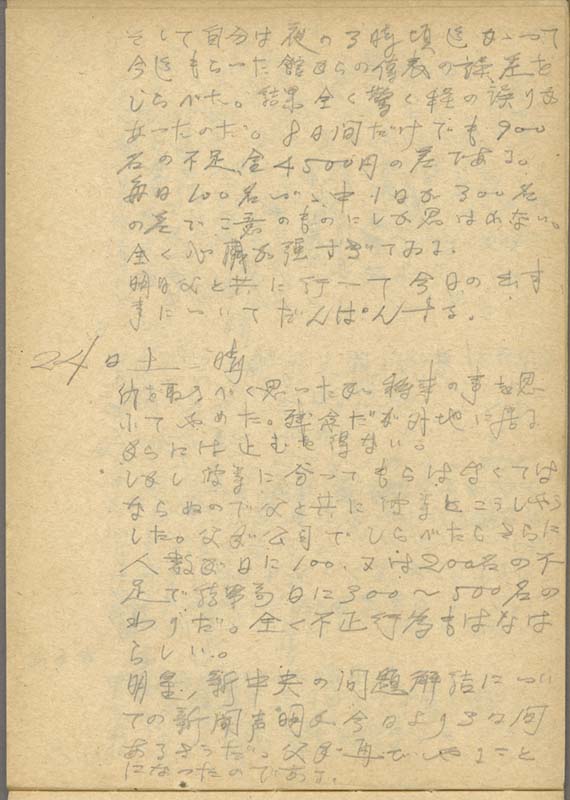 そして自分は夜の3時頃迄かゝって
今迄もらった館からの傳表の誤差を
しらべた。結果全く驚く程の誤りが
あったのだ。8日間だけでも900
名の不足、金4500円の差である。
毎日100名づゝ、中1日が300名
の差で故意のものにしか思はれない。
全く心臓が強すぎておる。
明日父と共に行って今日の出来
事についてだんぱんする。
24日 土 晴
仇を取るべく思ったが、将来の事を思
ってやめた。残念だが外地に居る
からには止むを得ない。
しかし彼等に分ってもらはなくては
ならぬので父と共に彼等とこうしやう
した。父が公司でしらべたらさらに
人数が日に100、又は200名の不
足で結局毎日に300〜500名の
わりだ。全く不正行為もはなは
らしい。
明星、新中央の問題解結につい
ての新聞声明が今日より3日間
あるさうだ。父が再でやること
になったのである。